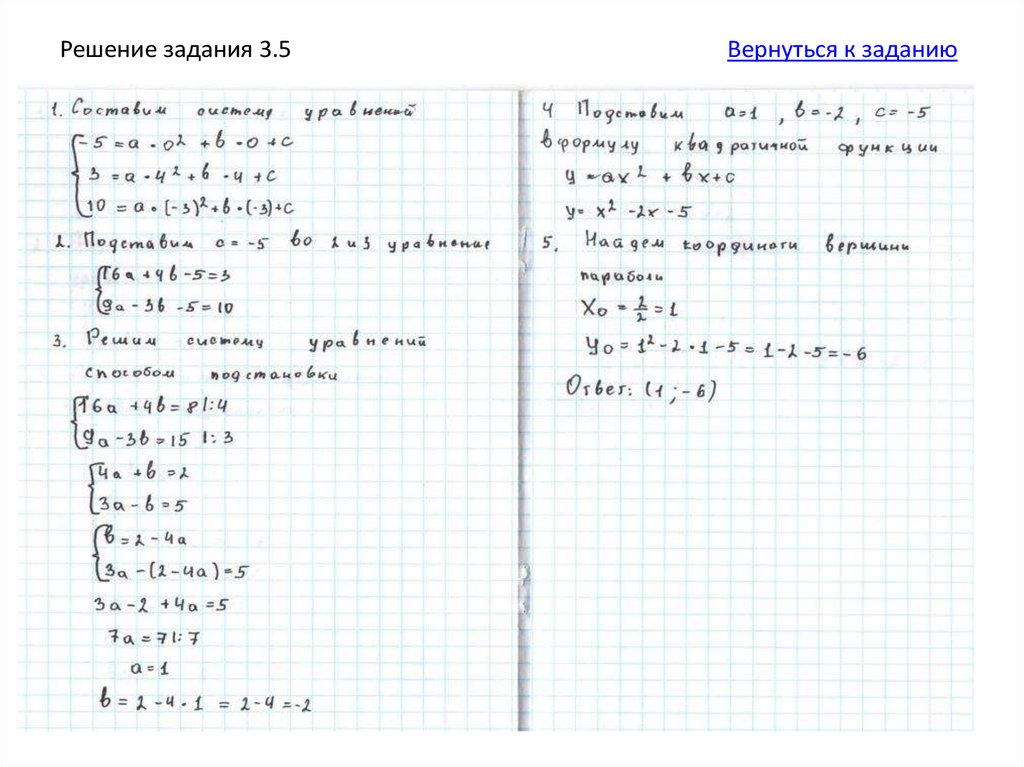 Решение задания 3.5
Вернуться к заданию
1. Составим систему уравнений
-5 = a · 0² + b · 0 + c
3 = a · 4² + b · 4 + c
10 = a · (-3)² + b · (-3) + c
2. Подставим c = -5 во 2 и 3 уравнение
16a + 4b - 5 = 3
9a - 3b - 5 = 10
3. Решим систему уравнений
способом подстановки
16a + 4b = 8 |:4
9a - 3b = 15 |:3
4a + b = 2
3a - b = 5
b = 2 - 4a
3a - (2 - 4a) = 5
3a - 2 + 4a = 5
7a = 7 |:7
a = 1
b = 2 - 4 · 1 = 2 - 4 = -2
4 Подставим a = 1 , b = -2 , c = -5
в формулу квадратичной функции
y = ax² + bx + c
y = x² - 2x - 5
5. Найдем координаты вершины
параболы
X₀ = 2/2 = 1
y₀ = 1² - 2 · 1 - 5 = 1 - 2 - 5 = -6
Ответ: (1 ; -6)